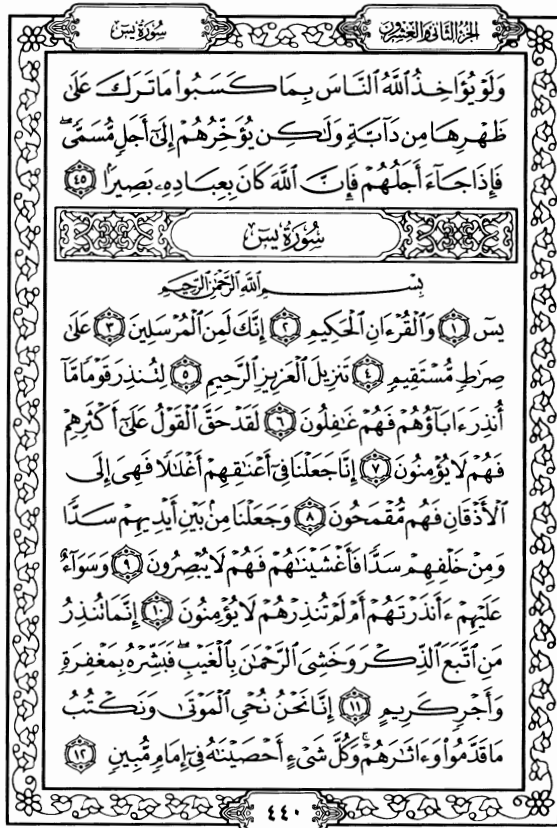 سُورَةُ يسٓ
الجُزْءُ الثَّانِي وَالعِشْرُونَ
وَلَوْ يُؤَاخِذُ ٱللَّهُ ٱلنَّاسَ بِمَا كَسَبُوا۟ مَا تَرَكَ عَلَىٰ
ظَهْرِهَا مِن دَآبَّةٍ وَلَٰكِن يُؤَخِّرُهُمْ إِلَىٰٓ أَجَلٍ مُّسَمًّى ۖ
فَإِذَا جَآءَ أَجَلُهُمْ فَإِنَّ ٱللَّهَ كَانَ بِعِبَادِهِۦ بَصِيرًۢا ٤٥
سُورَةُ يسٓ
بِسْمِ ٱللَّهِ ٱلرَّحْمَٰنِ ٱلرَّحِيمِ
يسٓ ١ وَٱلْقُرْءَانِ ٱلْحَكِيمِ ٢ إِنَّكَ لَمِنَ ٱلْمُرْسَلِينَ ٣ عَلَىٰ
صِرَٰطٍ مُّسْتَقِيمٍ ٤ تَنزِيلَ ٱلْعَزِيزِ ٱلرَّحِيمِ ٥ لِتُنذِرَ قَوْمًا مَّآ
أُنذِرَ ءَابَآؤُهُمْ فَهُمْ غَٰفِلُونَ ٦ لَقَدْ حَقَّ ٱلْقَوْلُ عَلَىٰٓ أَكْثَرِهِمْ
فَهُمْ لَا يُؤْمِنُونَ ٧ إِنَّا جَعَلْنَا فِىٓ أَعْنَٰقِهِمْ أَغْلَٰلًا فَهِىَ إِلَى
ٱلْأَذْقَانِ فَهُم مُّقْمَحُونَ ٨ وَجَعَلْنَا مِنۢ بَيْنِ أَيْدِيهِمْ سَدًّا
وَمِنْ خَلْفِهِمْ سَدًّا فَأَغْشَيْنَٰهُمْ فَهُمْ لَا يُبْصِرُونَ ٩ وَسَوَآءٌ
عَلَيْهِمْ ءَأَنذَرْتَهُمْ أَمْ لَمْ تُنذِرْهُمْ لَا يُؤْمِنُونَ ١٠ إِنَّمَا تُنذِرُ
مَنِ ٱتَّبَعَ ٱلذِّكْرَ وَخَشِىَ ٱلرَّحْمَٰنَ بِٱلْغَيْبِ ۖ فَبَشِّرْهُ بِمَغْفِرَةٍ
وَأَجْرٍ كَرِيمٍ ١١ إِنَّا نَحْنُ نُحْىِ ٱلْمَوْتَىٰ وَنَكْتُبُ
مَا قَدَّمُوا۟ وَءَاثَٰرَهُمْ ۚ وَكُلَّ شَىْءٍ أَحْصَيْنَٰهُ فِىٓ إِمَامٍ مُّبِينٍ ١٢
٤٤٠